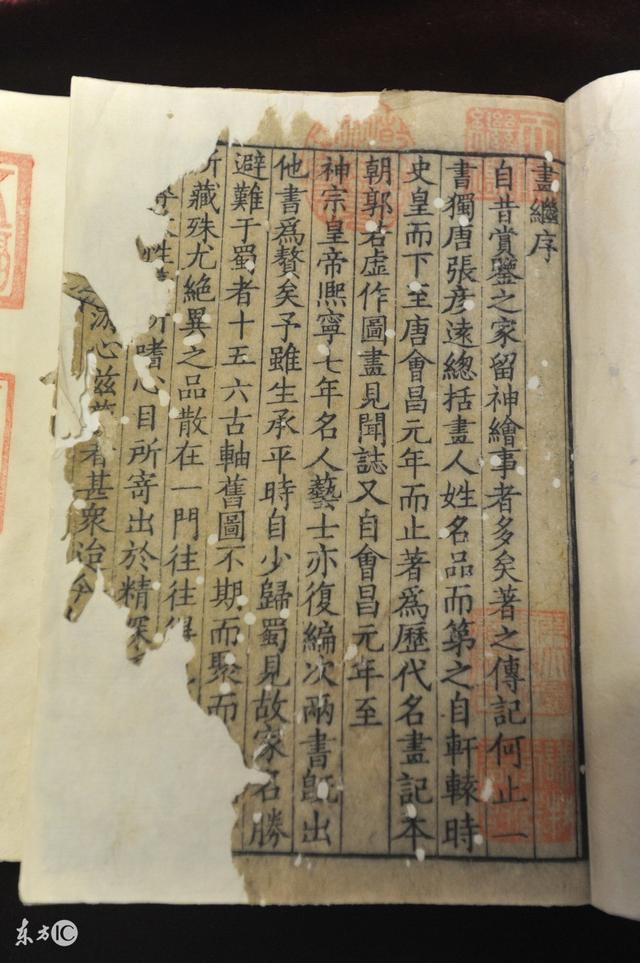 畫繼序
自昔賞鑒之家留神繪事者多矣著之傳記何止一
書獨唐張彥遠總括畫人姓名品而第之自軒轅時
史皇而下至唐會昌元年而止著為歷代名畫記本
朝郭若虛作圖畫見聞誌又自會昌元年至
神宗皇帝熙寧七年名人藝士亦復編次兩書既出
他書為贅矣予雖生承平時自少歸蜀見故家名勝
避難于蜀者十五六古軸舊圖不期而聚而
所藏殊尤絕異之品散在一門往往得
性 所嗜心目所寄出於精深
游心茲藝者甚眾迨今
東方IC